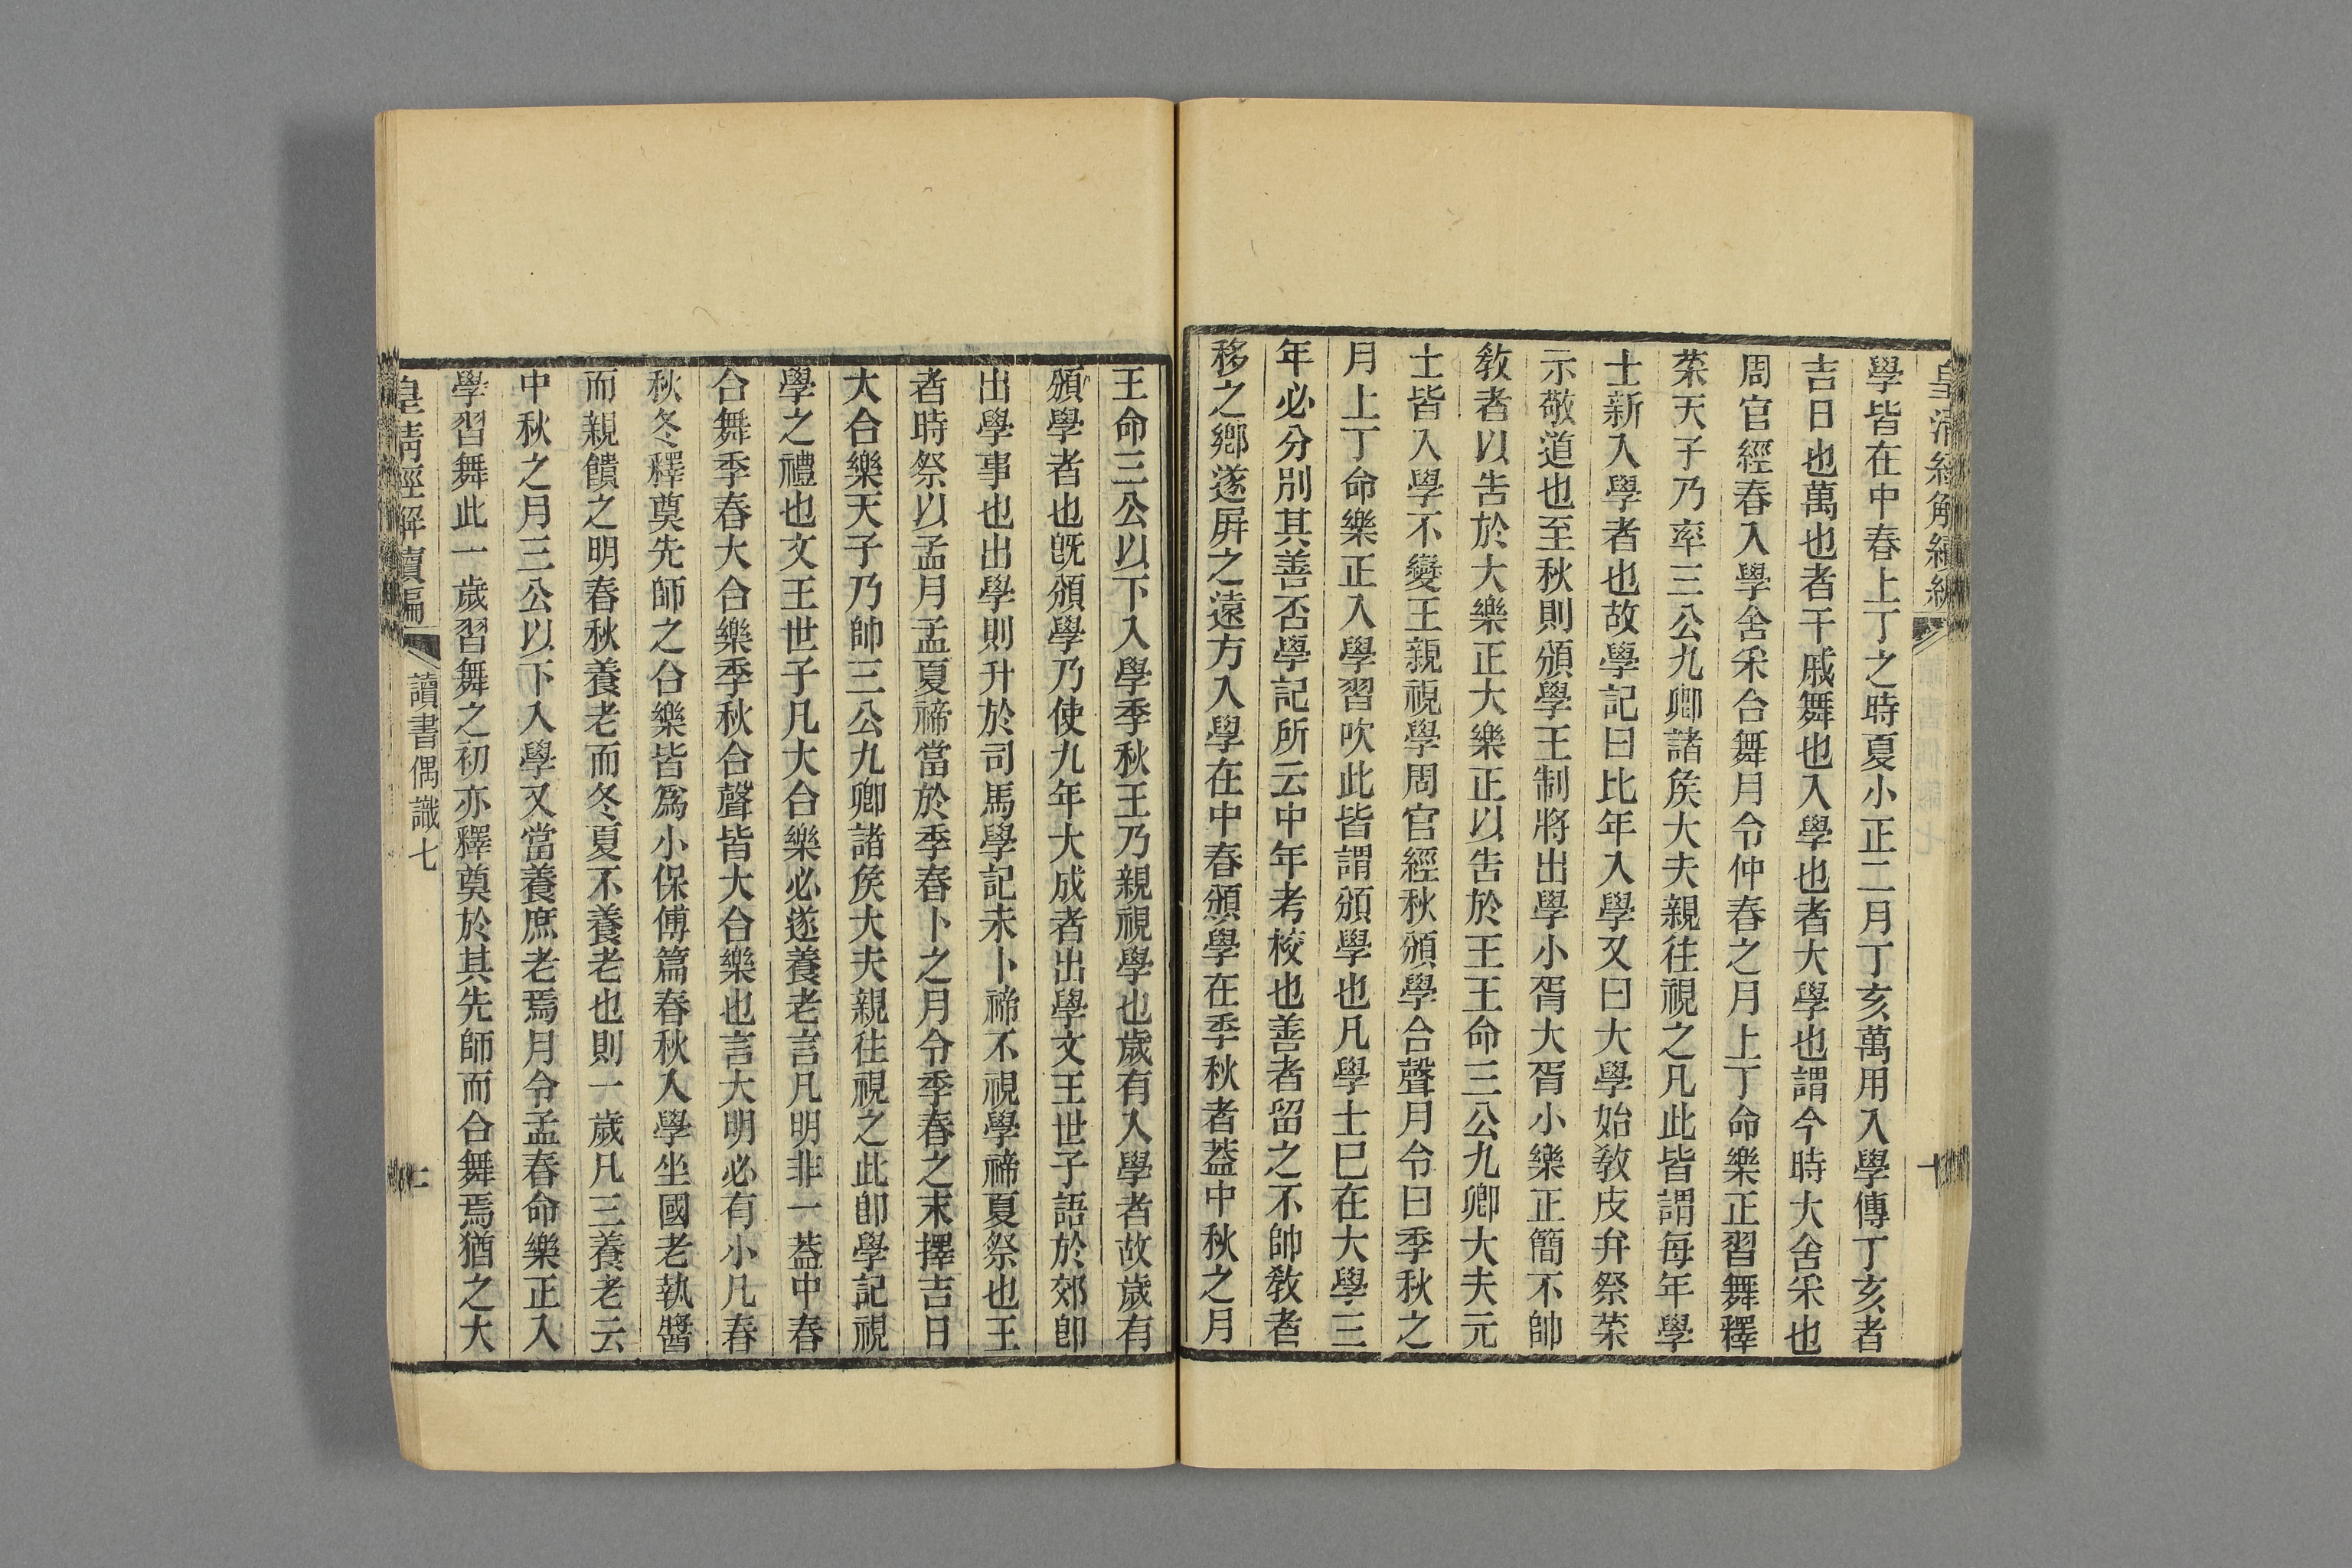 皇清經解續編
十
學皆在中春上丁之時夏小正二月丁亥萬用入學傳丁亥者
吉日也萬也者干戚舞也入學也者大學也謂今時大舍采也
周官經春入學舍采合舞月令仲春之月上丁命樂正習舞釋
菜天子乃率三公九卿諸矦大夫親往視之凡此皆謂每年學
士新入學者也故學記曰比年入學又曰大學始敎皮弁祭菜
示敬道也至秋則頒學王制將出學小胥大胥小樂正簡不帥
敎者以告於大樂正大樂正以告於王王命三公九卿大夫元
士皆入學不變王親視學周官經秋頒學合聲月令曰季秋之
月上丁命樂正入學習吹此皆謂頒學也凡學士巳在大學三
年必分別其善否學記所云中年考校也善者留之不帥敎者
移之鄉遂屛之遠方入學在中春頒學在季秋者葢中秋之月
王命三公以下入學季秋王乃親視學也歲有入學者故歲有
頒學者也旣頒學乃使九年大成者出學文王世子語於郊卽
出學事也出學則升於司馬學記未卜禘不視學禘夏祭也王
者時祭以孟月孟夏禘當於季春卜之月令季春之末擇吉日
大合樂天子乃帥三公九卿諸矦大夫親往視之此卽學記視
學之禮也文王世子凡大合樂必遂養老言凡明非一葢中春
合舞季春大合樂季秋合聲皆大合樂也言大明必有小凡春
秋冬釋奠先師之合樂皆爲小保傅篇春秋入學坐國老執醬
而親饋之明春秋養老而冬夏不養老也則一歲凡三養老云
中秋之月三公以下入學又當養庶老焉月令孟春命樂正入
學習舞此一歲習舞之初亦釋奠於其先師而合舞焉猶之大
皇清經解續編
讀書偶識七